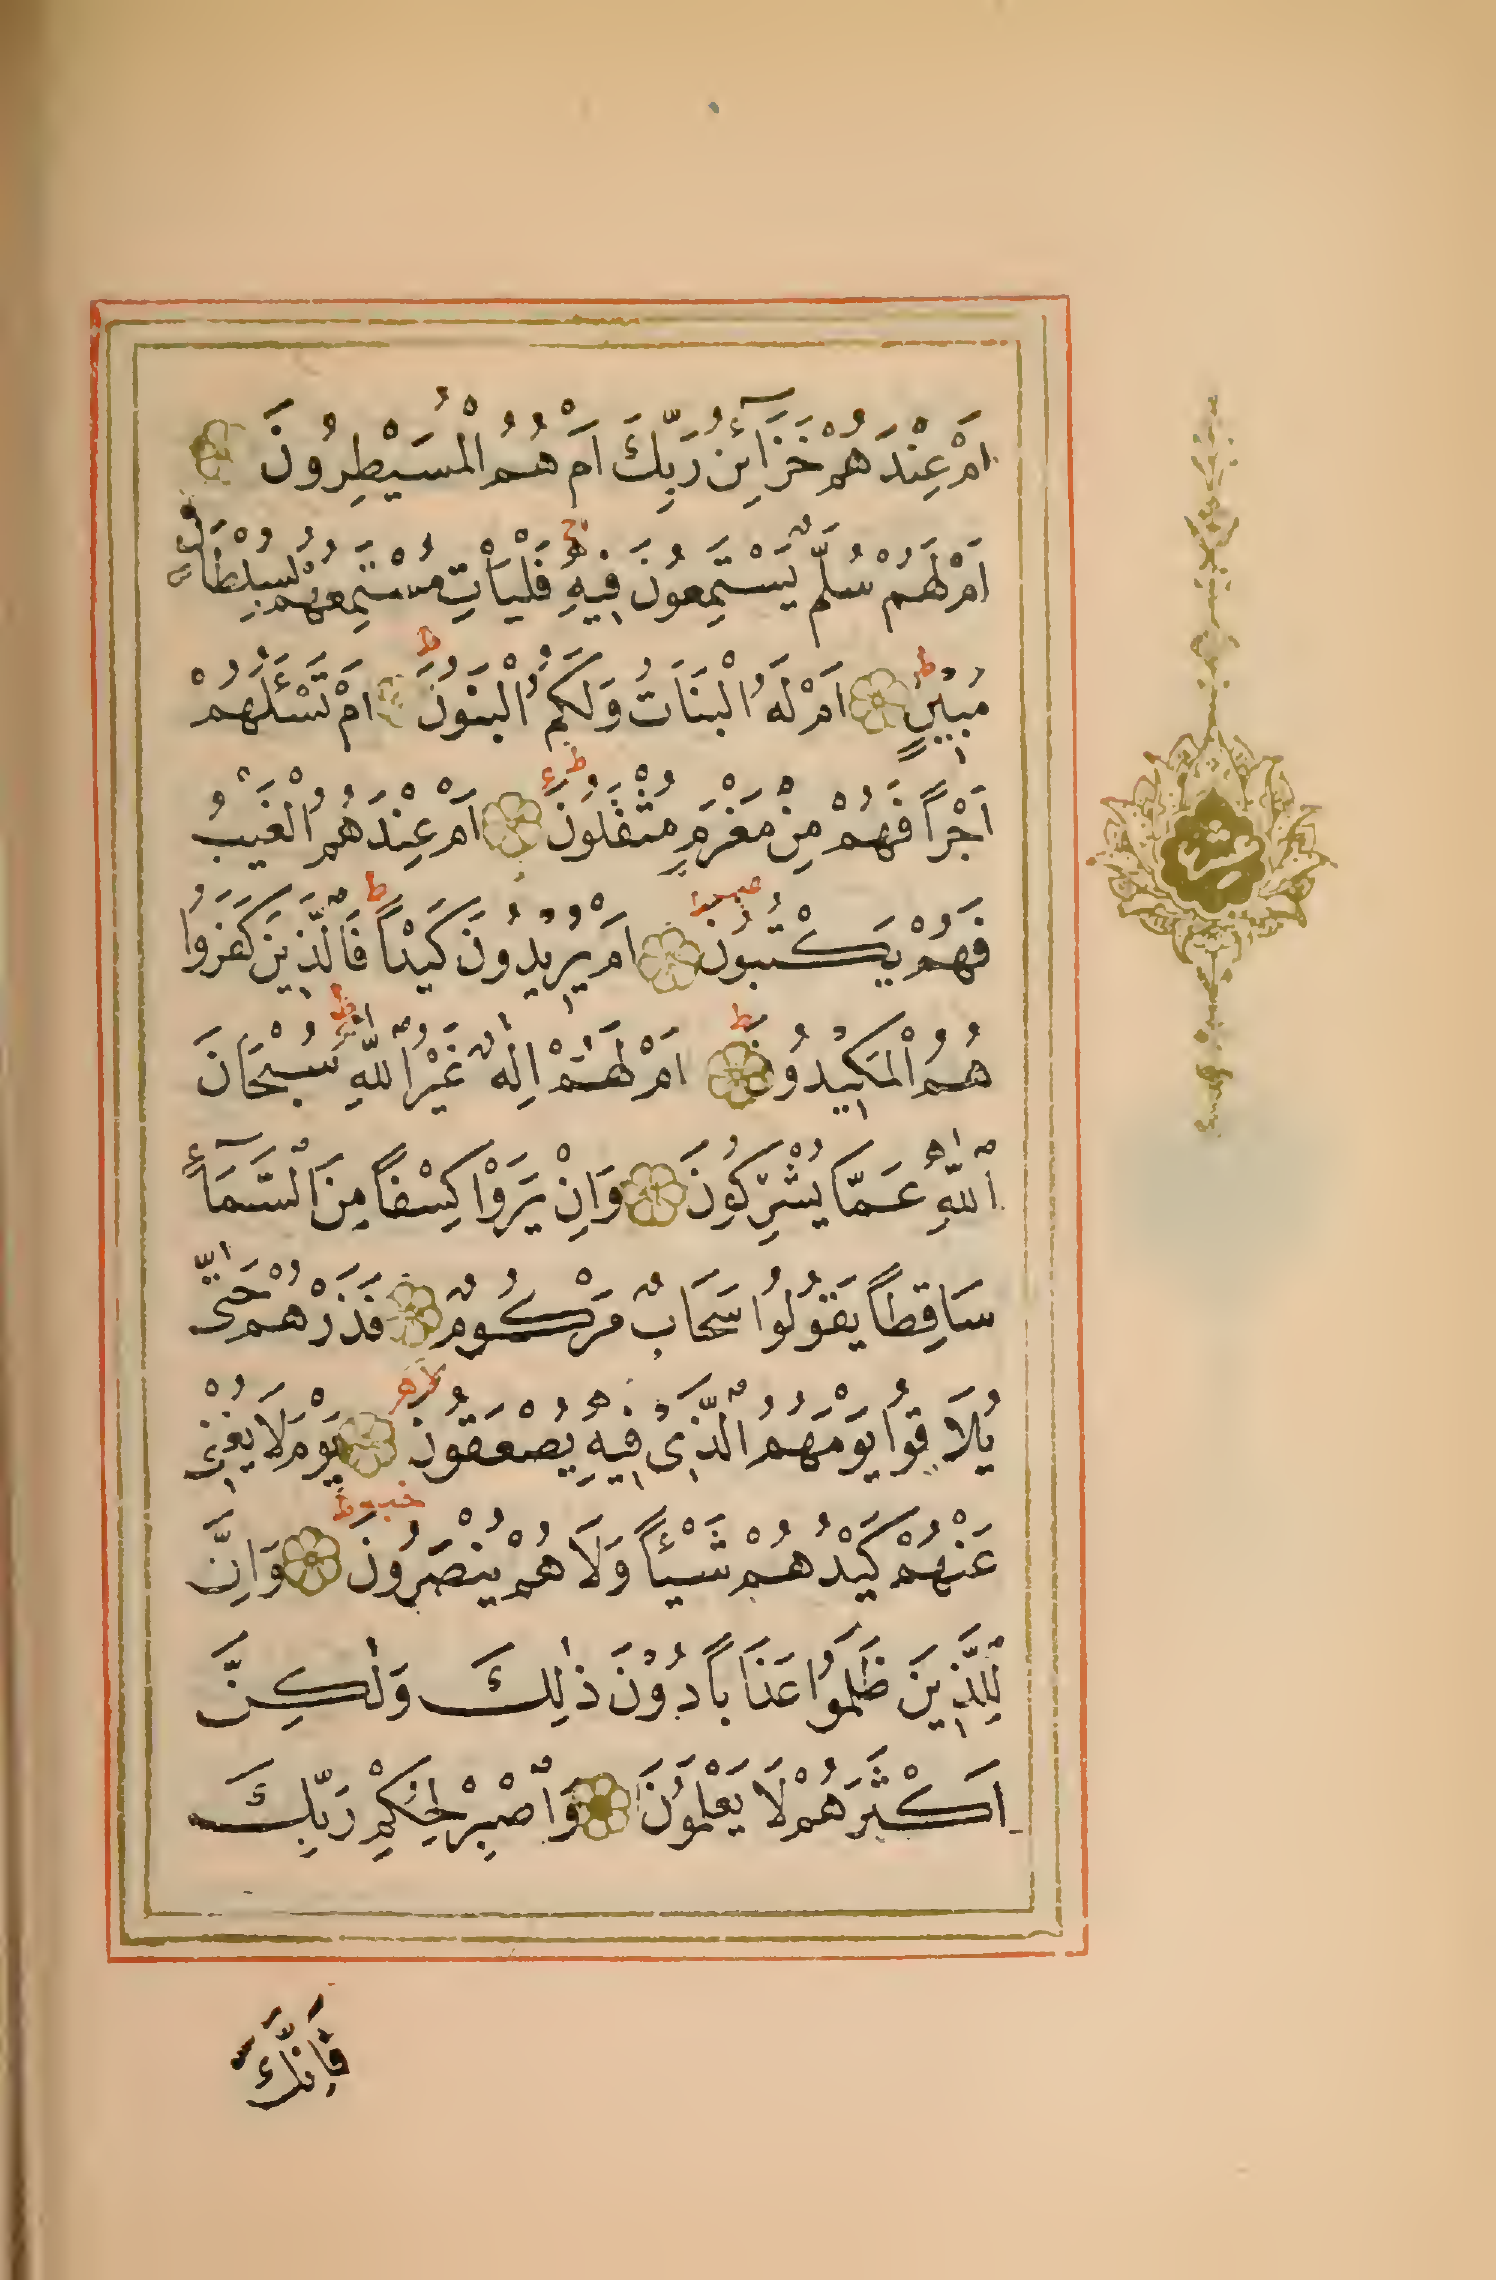 اَمْ عِنْدَهُمْ خَزَآئِنُ رَبِّكَ اَمْ هُمُ الْمُسَيْطِرُونَ
اَمْ لَهُمْ سُلَّمٌ يَسْتَمِعُونَ فِيهِ فَلْيَأْتِ مُسْتَمِعُهُمْ بِسُلْطَانٍ
مُبِينٍ اَمْ لَهُ الْبَنَاتُ وَلَكُمُ الْبَنُونَ اَمْ تَسْئَلُهُمْ
اَجْراً فَهُمْ مِنْ مَغْرَمٍ مُثْقَلُونَ اَمْ عِنْدَهُمُ الْغَيْبُ
فَهُمْ يَكْتُبُونَ اَمْ يُرِيدُونَ كَيْداً فَالَّذِينَ كَفَرُوا
هُمُ الْمَكِيدُونَ اَمْ لَهُمْ اِلٰهٌ غَيْرُ اللّٰهِ سُبْحَانَ
اللّٰهِ عَمَّا يُشْرِكُونَ وَاِنْ يَرَوْا كِسْفاً مِنَ السَّمَآءِ
سَاقِطاً يَقُولُوا سَحَابٌ مَرْكُومٌ فَذَرْهُمْ حَتّٰى
يُلَاقُوا يَوْمَهُمُ الَّذِى فِيهِ يُصْعَقُونَ يَوْمَ لَا يُغْنِى
عَنْهُمْ كَيْدُهُمْ شَيْئاً وَلَا هُمْ يُنْصَرُونَ وَاِنَّ
لِلَّذِينَ ظَلَمُوا عَذَاباً دُونَ ذٰلِكَ وَلٰكِنَّ
اَكْثَرَهُمْ لَا يَعْلَمُونَ وَاصْبِرْ لِحُكْمِ رَبِّكَ
فَاِنَّكَ